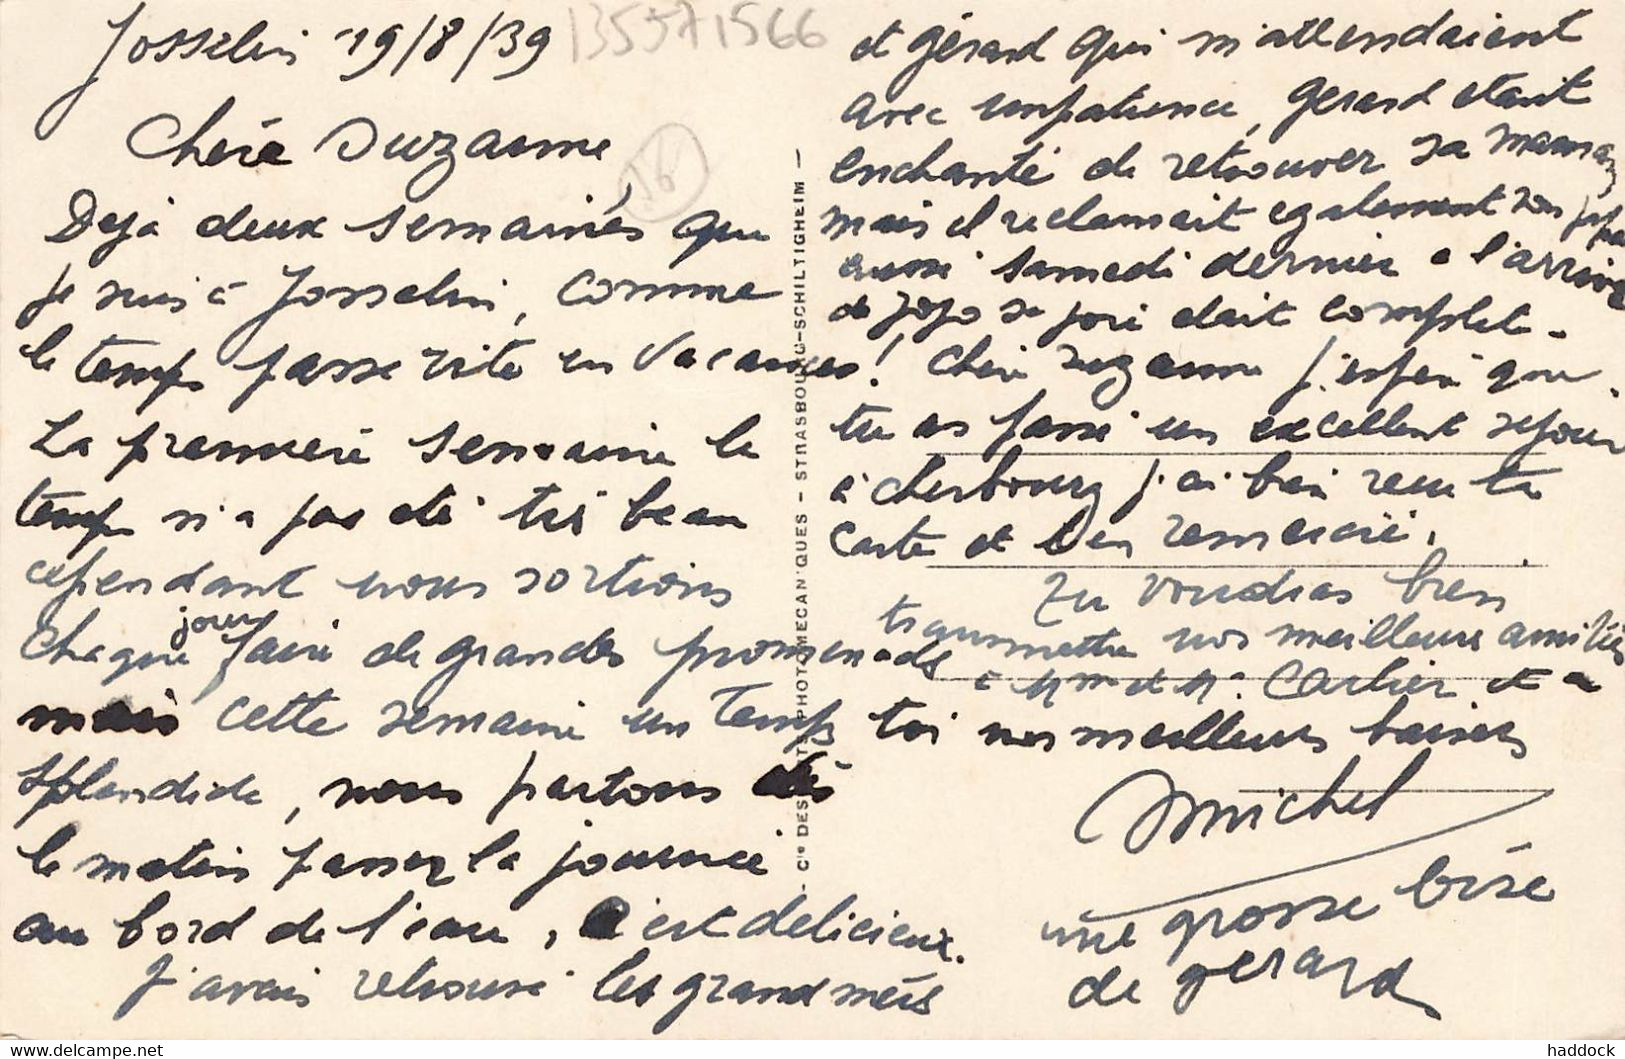 Josselin 19/8/39
135571566
16
Chère Suzanne
Dejà deux semaines que
je suis à Josselin, comme
le temps passe vite en vacances!
La première semaine le
temps n'a pas été très beau
cependant nous sortions
chaque jour faire de grandes promenades
mais cette semaine un temps
splendide, nous partons dès
le matin passer la journée
au bord de l'eau, c'est delicieux.
J'avais retrouvé les grandmères
et Gérard qui m'attendaient
avec impatience, Gerard etait
enchanté de retrouver sa maman
mais il reclamait egalement son papa
aussi samedi dernier a l'arrivée
de jojo sa joie etait complete.
Chère Suzanne j'espère que
tu as passé un excellent sejour
à cherbourg j'ai bien recu ta
carte et t'en remercie.
Tu voudras bien
transmettre nos meilleures amitiés
à Mme et Mr. Cartier et a
toi nos meilleurs baisers
Michel
une grosse bise
de gerard
Cie DES PHOTOMECANIQUES - STRASBOURG-SCHILTIGHEIM -
www.delcampe.net
haddock